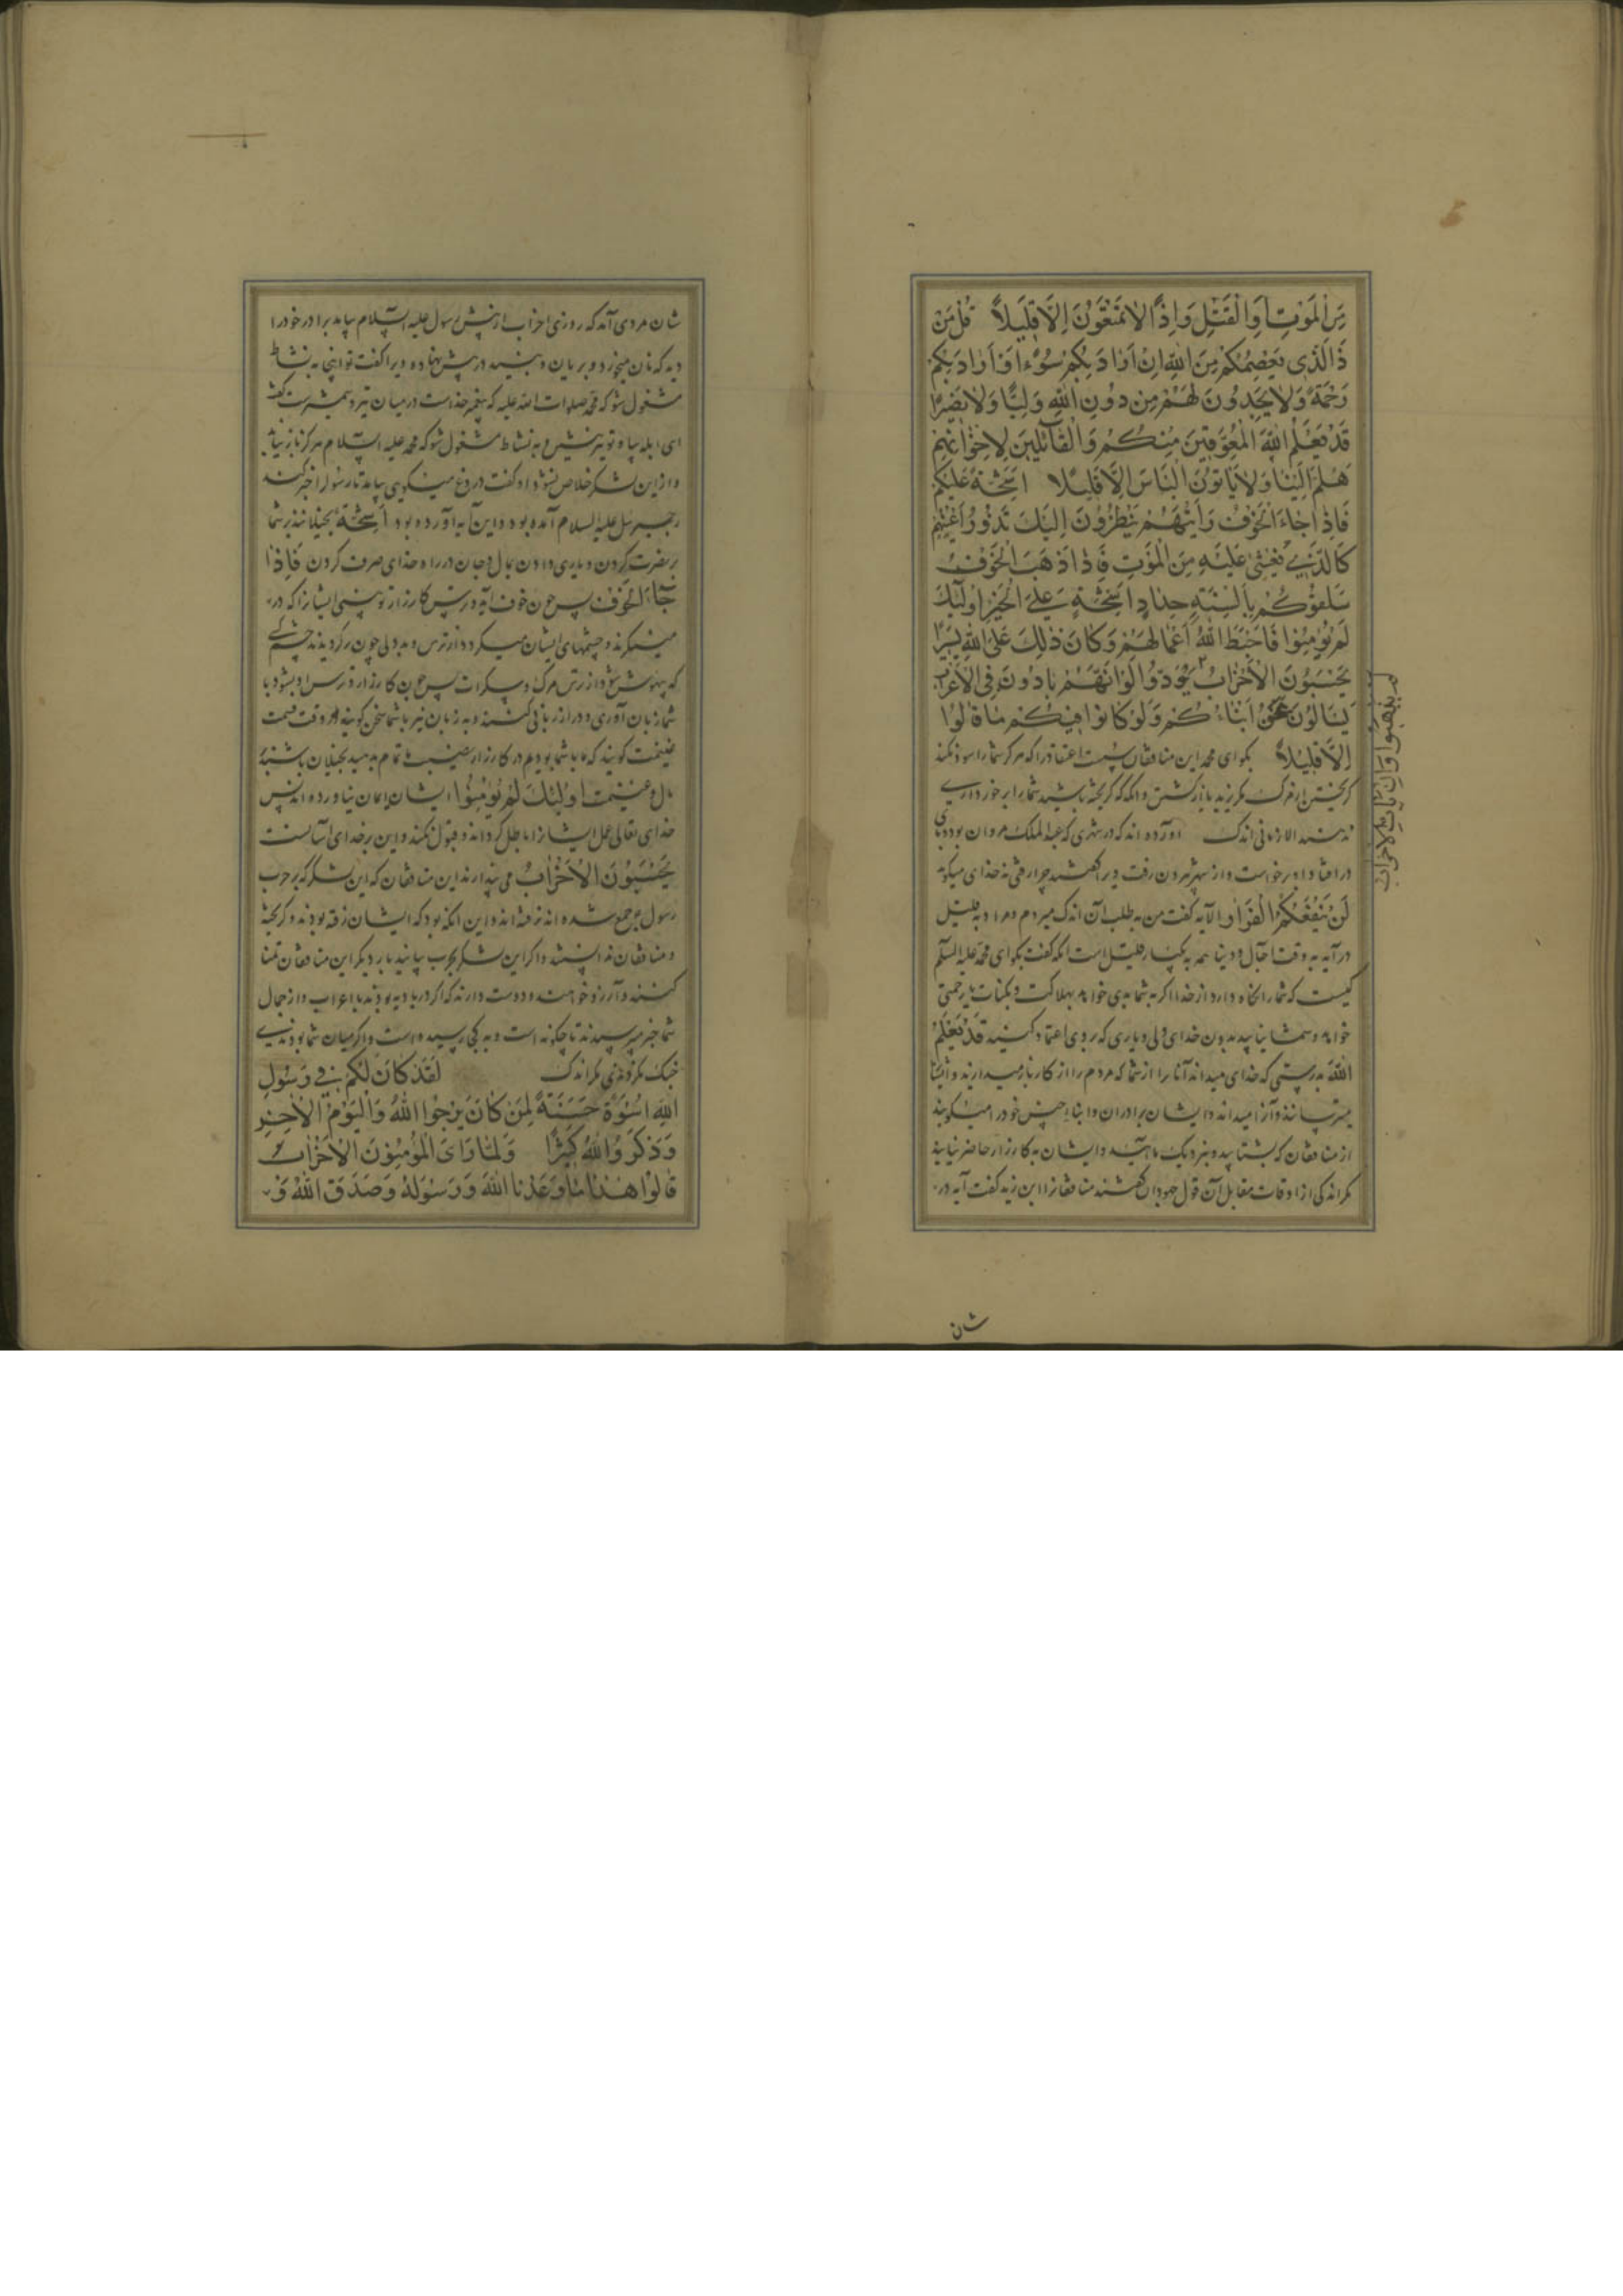 مِنَ الْمَوْتِ اَوِ الْقَتْلِ وَاِذًا لَا تُمَتَّعُونَ اِلَّا قَلِيلًا قُلْ مَنْ
ذَا الَّذِى يَعْصِمُكُمْ مِنَ اللهِ اِنْ اَرَادَ بِكُمْ سُوْءًا اَوْ اَرَادَ بِكُمْ
رَحْمَةً وَلَا يَجِدُونَ لَهُمْ مِنْ دُونِ اللهِ وَلِيًّا وَلَا نَصِيرًا
قَدْ يَعْلَمُ اللهُ الْمُعَوِّقِينَ مِنْكُمْ وَالْقَائِلِينَ لِاِخْوَانِهِمْ
هَلُمَّ اِلَيْنَا وَلَا يَاْتُونَ الْبَاْسَ اِلَّا قَلِيلًا اَشِحَّةً عَلَيْكُمْ
فَاِذَا جَاءَ الْخَوْفُ رَاَيْتَهُمْ يَنْظُرُونَ اِلَيْكَ تَدُورُ اَعْيُنُهُمْ
كَالَّذِى يُغْشٰى عَلَيْهِ مِنَ الْمَوْتِ فَاِذَا ذَهَبَ الْخَوْفُ
سَلَقُوكُمْ بِاَلْسِنَةٍ حِدَادٍ اَشِحَّةً عَلَى الْخَيْرِ اُولٰئِكَ
لَمْ يُؤْمِنُوا فَاَحْبَطَ اللهُ اَعْمَالَهُمْ وَكَانَ ذٰلِكَ عَلَى اللهِ يَسِيرًا
يَحْسَبُونَ الْاَحْزَابَ يَوَدُّوا لَوْ اَنَّهُمْ بَادُونَ فِى الْاَعْرَابِ
لم يذهبوا وان يات الاحزاب
يَسْاَلُونَ عَنْ اَنْبَاءِكُمْ وَلَوْ كَانُوا فِيكُمْ مَا قَاتَلُوا
اِلَّا قَلِيلًا بكو اى محمد اين منافقان اعتقاد را كه هركز شما را سود نكند
كريختن از مرك شما را برخوردارى
ندهند الا زمانى اندك آورده اند كه در شهرى كه عبد الملك مروان بود
در افتاد او برخواست و از شهر بيرون رفت ويرا كفتند چرا رفتى نه خداى ميكويد
لَنْ يَنْفَعَكُمُ الْفِرَارُ الآيه كفت من به طلب آن اندك ميروم
قليل است انكه كفت بكو اى محمد عليه السلام
كيست كه شما را نكاه دارد از خدا اكر به شما بدى خواهد
خواهد و شما نيابيد بدون خداى ولى و يارى كه بر وى اعتماد كنيد قَدْ يَعْلَمُ
اللهُ بدرستى كه خداى ميداند آنانرا از شما كه مردم را از كار باز ميدارند
ميترسانند و آنرا ميداند و ايشان برادران و ابناء جنس خود را ميكويند
از منافقان كه بشتابيد و بنزديك ما آئيد و ايشان به كارزار حاضر نيايند
مكر اندكى از اوقات مقابل آن قول جهودان كفتند منافقانرا ابن زيد كفت آيه در
شان
شان مردى آمد كه روزى احزاب از پيش رسول عليه السلام بيامد برادر خود را
ديد كه نان ميخورد و بريان و نبيد در پيش نهاده ويرا كفت تو اينجا به نشاط
مشغول شوكه محمد صلوات الله عليه كه پيغمبر خداست در ميان تير و شمشير است كفت
اى ابله بيا و تو نيز بنشين و به نشاط مشغول شو كه محمد عليه السلام هركز باز نيايد
و از اين لشكر خلاص نشود او كفت دروغ ميكويى بيامد تا رسول را خبر كند
جبرئيل عليه السلام آمده بود و اين آيه آورده بود اَشِحَّةً بخيلانند بر شما
بر نصرت كردن و يارى دادن بمال و جان در راه خداى صرف كردن فَاِذَا
جَاءَ الْخَوْفُ پس چون خوف آيد و ترس كارزار تو بينى ايشانرا كه در
مينكرند و چشمهاى ايشان ميكردد از ترس و بددلى چون كرديدن چشم كسى
كه بيهوش شود از ترس مرك و سكرات پس چون كارزار و ترس او بشود با
شما زبان آورى و دراز زبانى كنند و به زبان تيز با شما سخن كويند در وقت قسمت
غنيمت كويند كه ما با شما بوديم در كارزار نصيب ما تمام بدهيد بخيلان باشند
مال و غنيمت اُولٰئِكَ لَمْ يُؤْمِنُوا ايشان ايمان نياورده اند پس
خداى تعالى عمل ايشانرا باطل كرداند و قبول نكند و اين بر خداى آسانست
يَحْسَبُونَ الْاَحْزَابَ مى پندارند اين منافقان كه اين لشكر كه بر حرب
رسول جمع شده اند نرفته اند و اين انكه بود كه ايشان رفته بودند و كريخته
و منافقان ندانستند و اكر اين لشكر بحرب بيايند بار ديكر اين منافقان تمنا
كنند و آرزو خواهند و دوست دارند كه اكر در باديه بودند با اعراب و از حال
شما خبر ميپرسيدند تا چكونه است و به كجا رسيده است و اكر ميان شما بودندى
جنك نكردندى مكر اندك لَقَدْ كَانَ لَكُمْ فِى رَسُولِ
اللهِ اُسْوَةٌ حَسَنَةٌ لِمَنْ كَانَ يَرْجُوا اللهَ وَالْيَوْمَ الْاٰخِرَ
وَذَكَرَ اللهَ كَثِيرًا وَلَمَّا رَاَى الْمُؤْمِنُونَ الْاَحْزَابَ
قَالُوا هٰذَا مَا وَعَدَنَا اللهُ وَرَسُولُهُ وَصَدَقَ اللهُ وَ